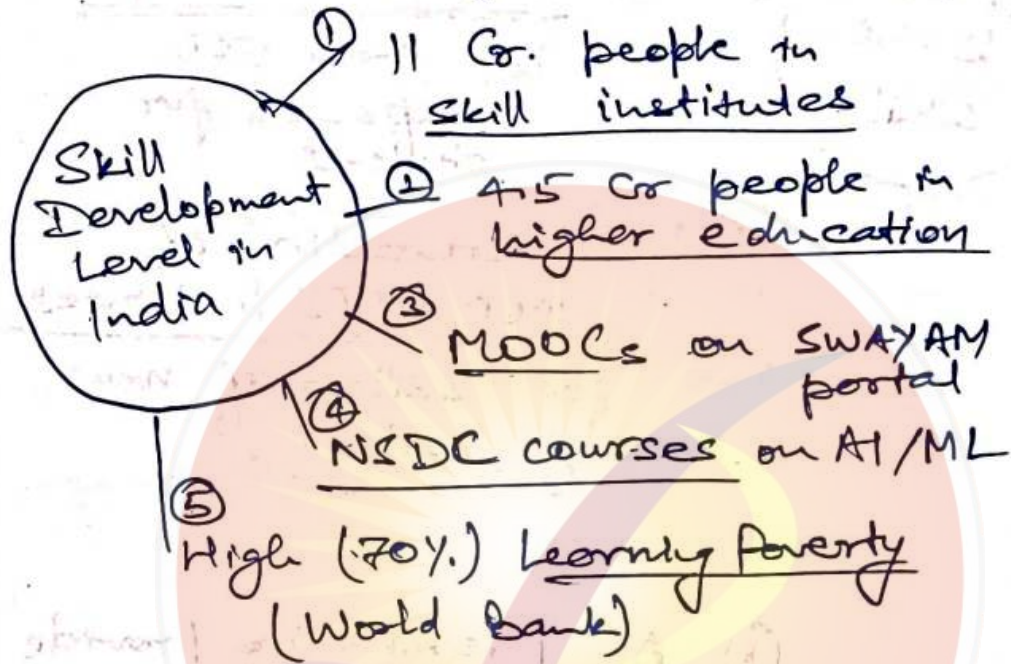 Skill
Development
Level in
India
① 11 Cr. people in
skill institutes
② 4.5 Cr people in
higher education
③ MOOCs on SWAYAM
portal
④ NSDC courses on AI/ML
⑤ High (70%) Learning Poverty
(World Bank)